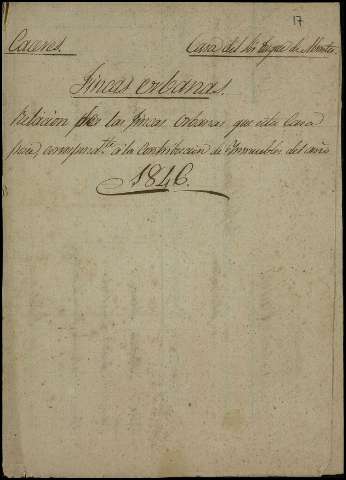 17
Caceres. Casa del Sr Duque de Montes
Fincas urbanas.
Relacion de las fincas urbanas que esta Casa
posee, correspond.te á la Contribucion de Inmuebles del año
1846.